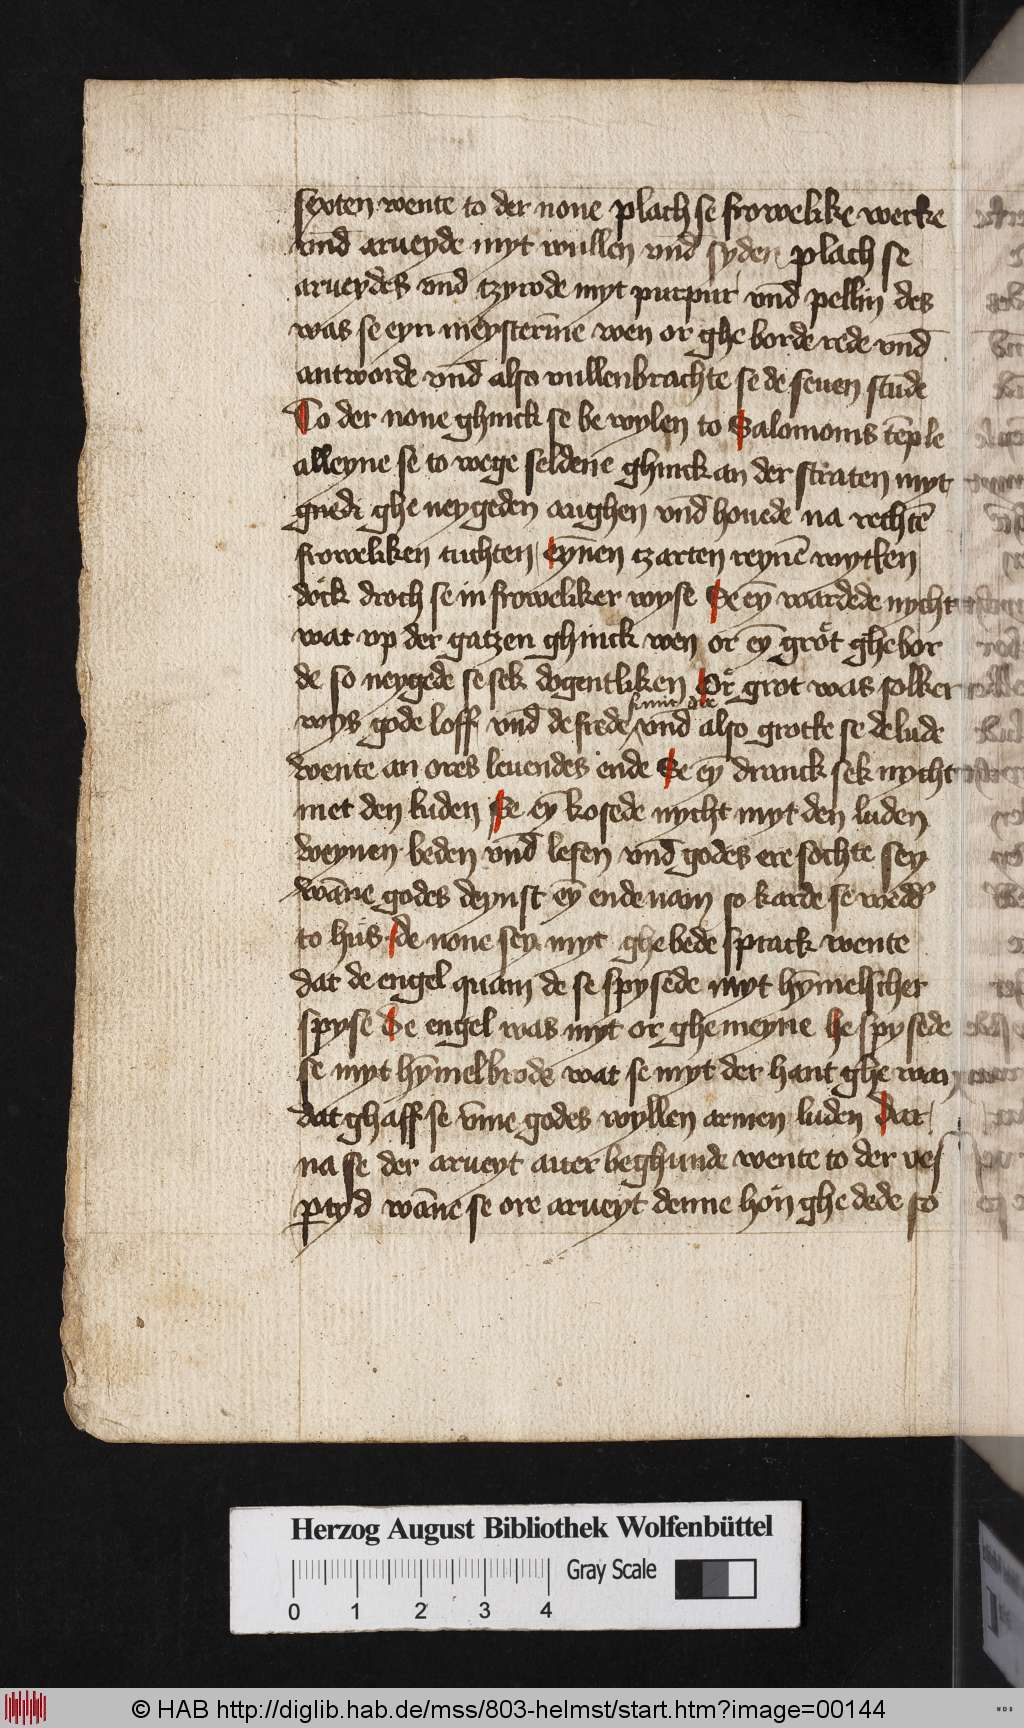 sexten wente to der none plach se frowelike wercke
vnd̄ arueyde myt wullen vnd̄ syden plach se
arueydes vnd̄ tzyrode myt purpur vnd̄ pellin des
was se eyn meysterīne wen or ghe borde rede vnd̄
antworde vnd̄ also vullenbrachte se de seuen stūde
To der none ghinck se be wylen to Salomonis tēple
alleyne se to wege seldene ghinck an der straten myt
ghe neygeden aughen vnd̄ houede na rechtē
froweliken tuchten eynen tzarten reynē wytten
dok droch se in froweliker wyse Se eȳ wardede nycht
wat vp der gatzen ghinck wen or eȳ grot ghebor
de so neygede se sek dogentliken Or grot was solker
wys gode loff vnd̄ de frede vnd̄ also grotte se de lude
wente an ores leuendes ende Se eȳ dranck sek nycht
met den luden Se eȳ kosede nycht myt den luden
weynen beden vnd̄ lesen vnd̄ godes ere sochte sey
wāne godes deynst eȳ ende nam so karde se wedd'
to hus de none sey myt ghe bede sprack wente
dat de engel quam de se spysede myt hȳmelscher
spyse De engel was myt or ghemeyne he spysede
se myt hȳmelbrode wat se myt der hant ghe wan
dat ghaff se v̄me godes wyllen armen luden Dar
na se der arueyt auer beghunde wente to der ves
ꝑtyd wāne se ore arueyt denne hen ghe dede so
Herzog August Bibliothek Wolfenbüttel
Gray Scale
0 1 2 3 4
© HAB http://diglib.hab.de/mss/803-helmst/start.htm?image=00144